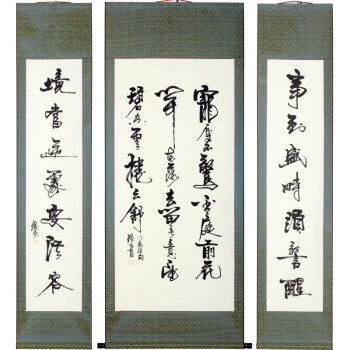 事到盛時須警醒
寵辱不驚看庭前花
開花落去留無意望
碧空雲捲雲舒
境當逆處要從容